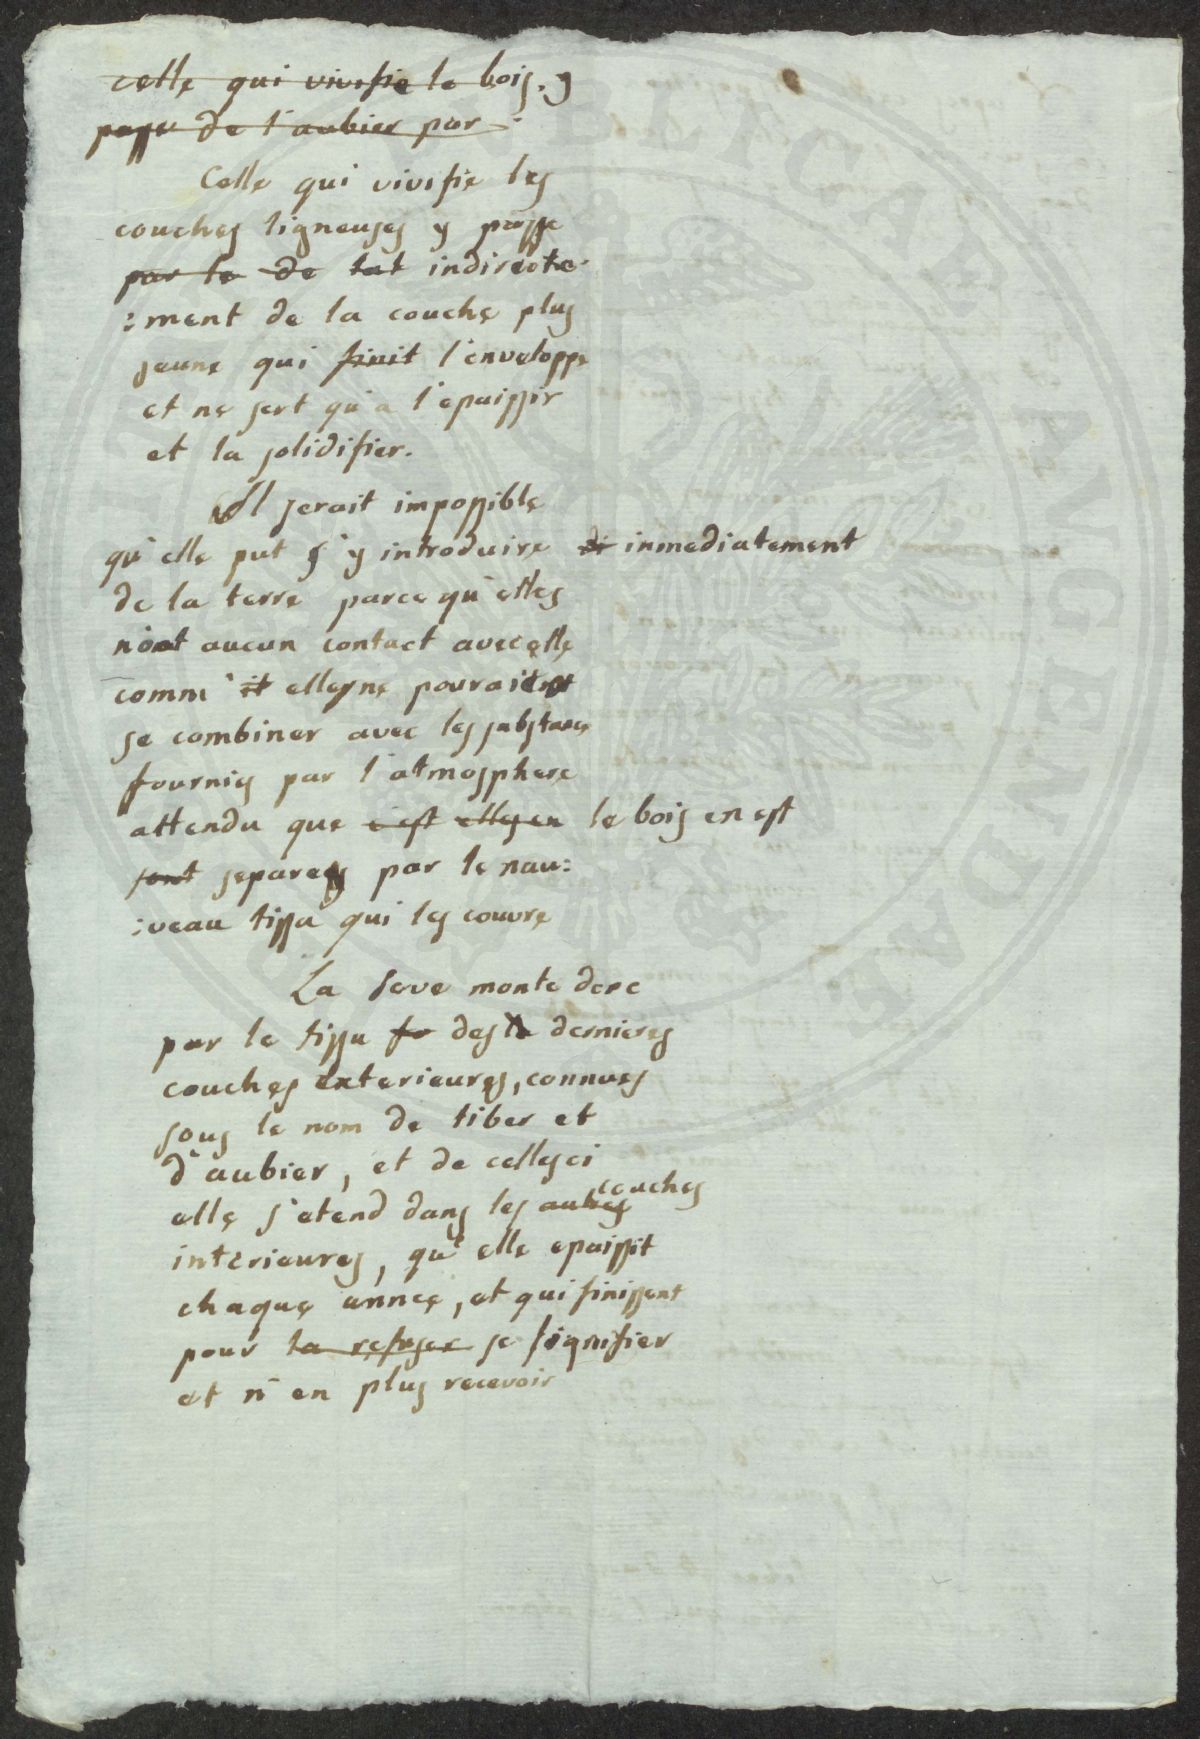 celle qui vivifie le bois, y
passe de l'aubier par
Celle qui vivifie les
couches ligneuses y passe
par le de tat indirecte:
:ment de la couche plus
jeune qui finit l'enveloppe
et ne sert qu'a l'epaissir
et la solidifier.
Il serait impossible
qu'elle put s'y introduire di inmediatement
de la terre parce qu'elles
n'ont aucun contact avec elle
comm' it elles ne pouraient
se combiner avec les substances
fournies par l'atmosphere
attendu que c'est elles en le bois en est
sont separes par le nou:
:veau tissu qui les couvre
La seve monte donc
par le tissu fo des la dernieres
couches exterieures, connues
sous le nom de liber et
d'aubier, et de celles ci
couches
elle s'etend dans les autres
interieures, qu'elle epaissit
chaque annee, et qui finissent
pour la refuser se lignifier
et n'en plus recevoir